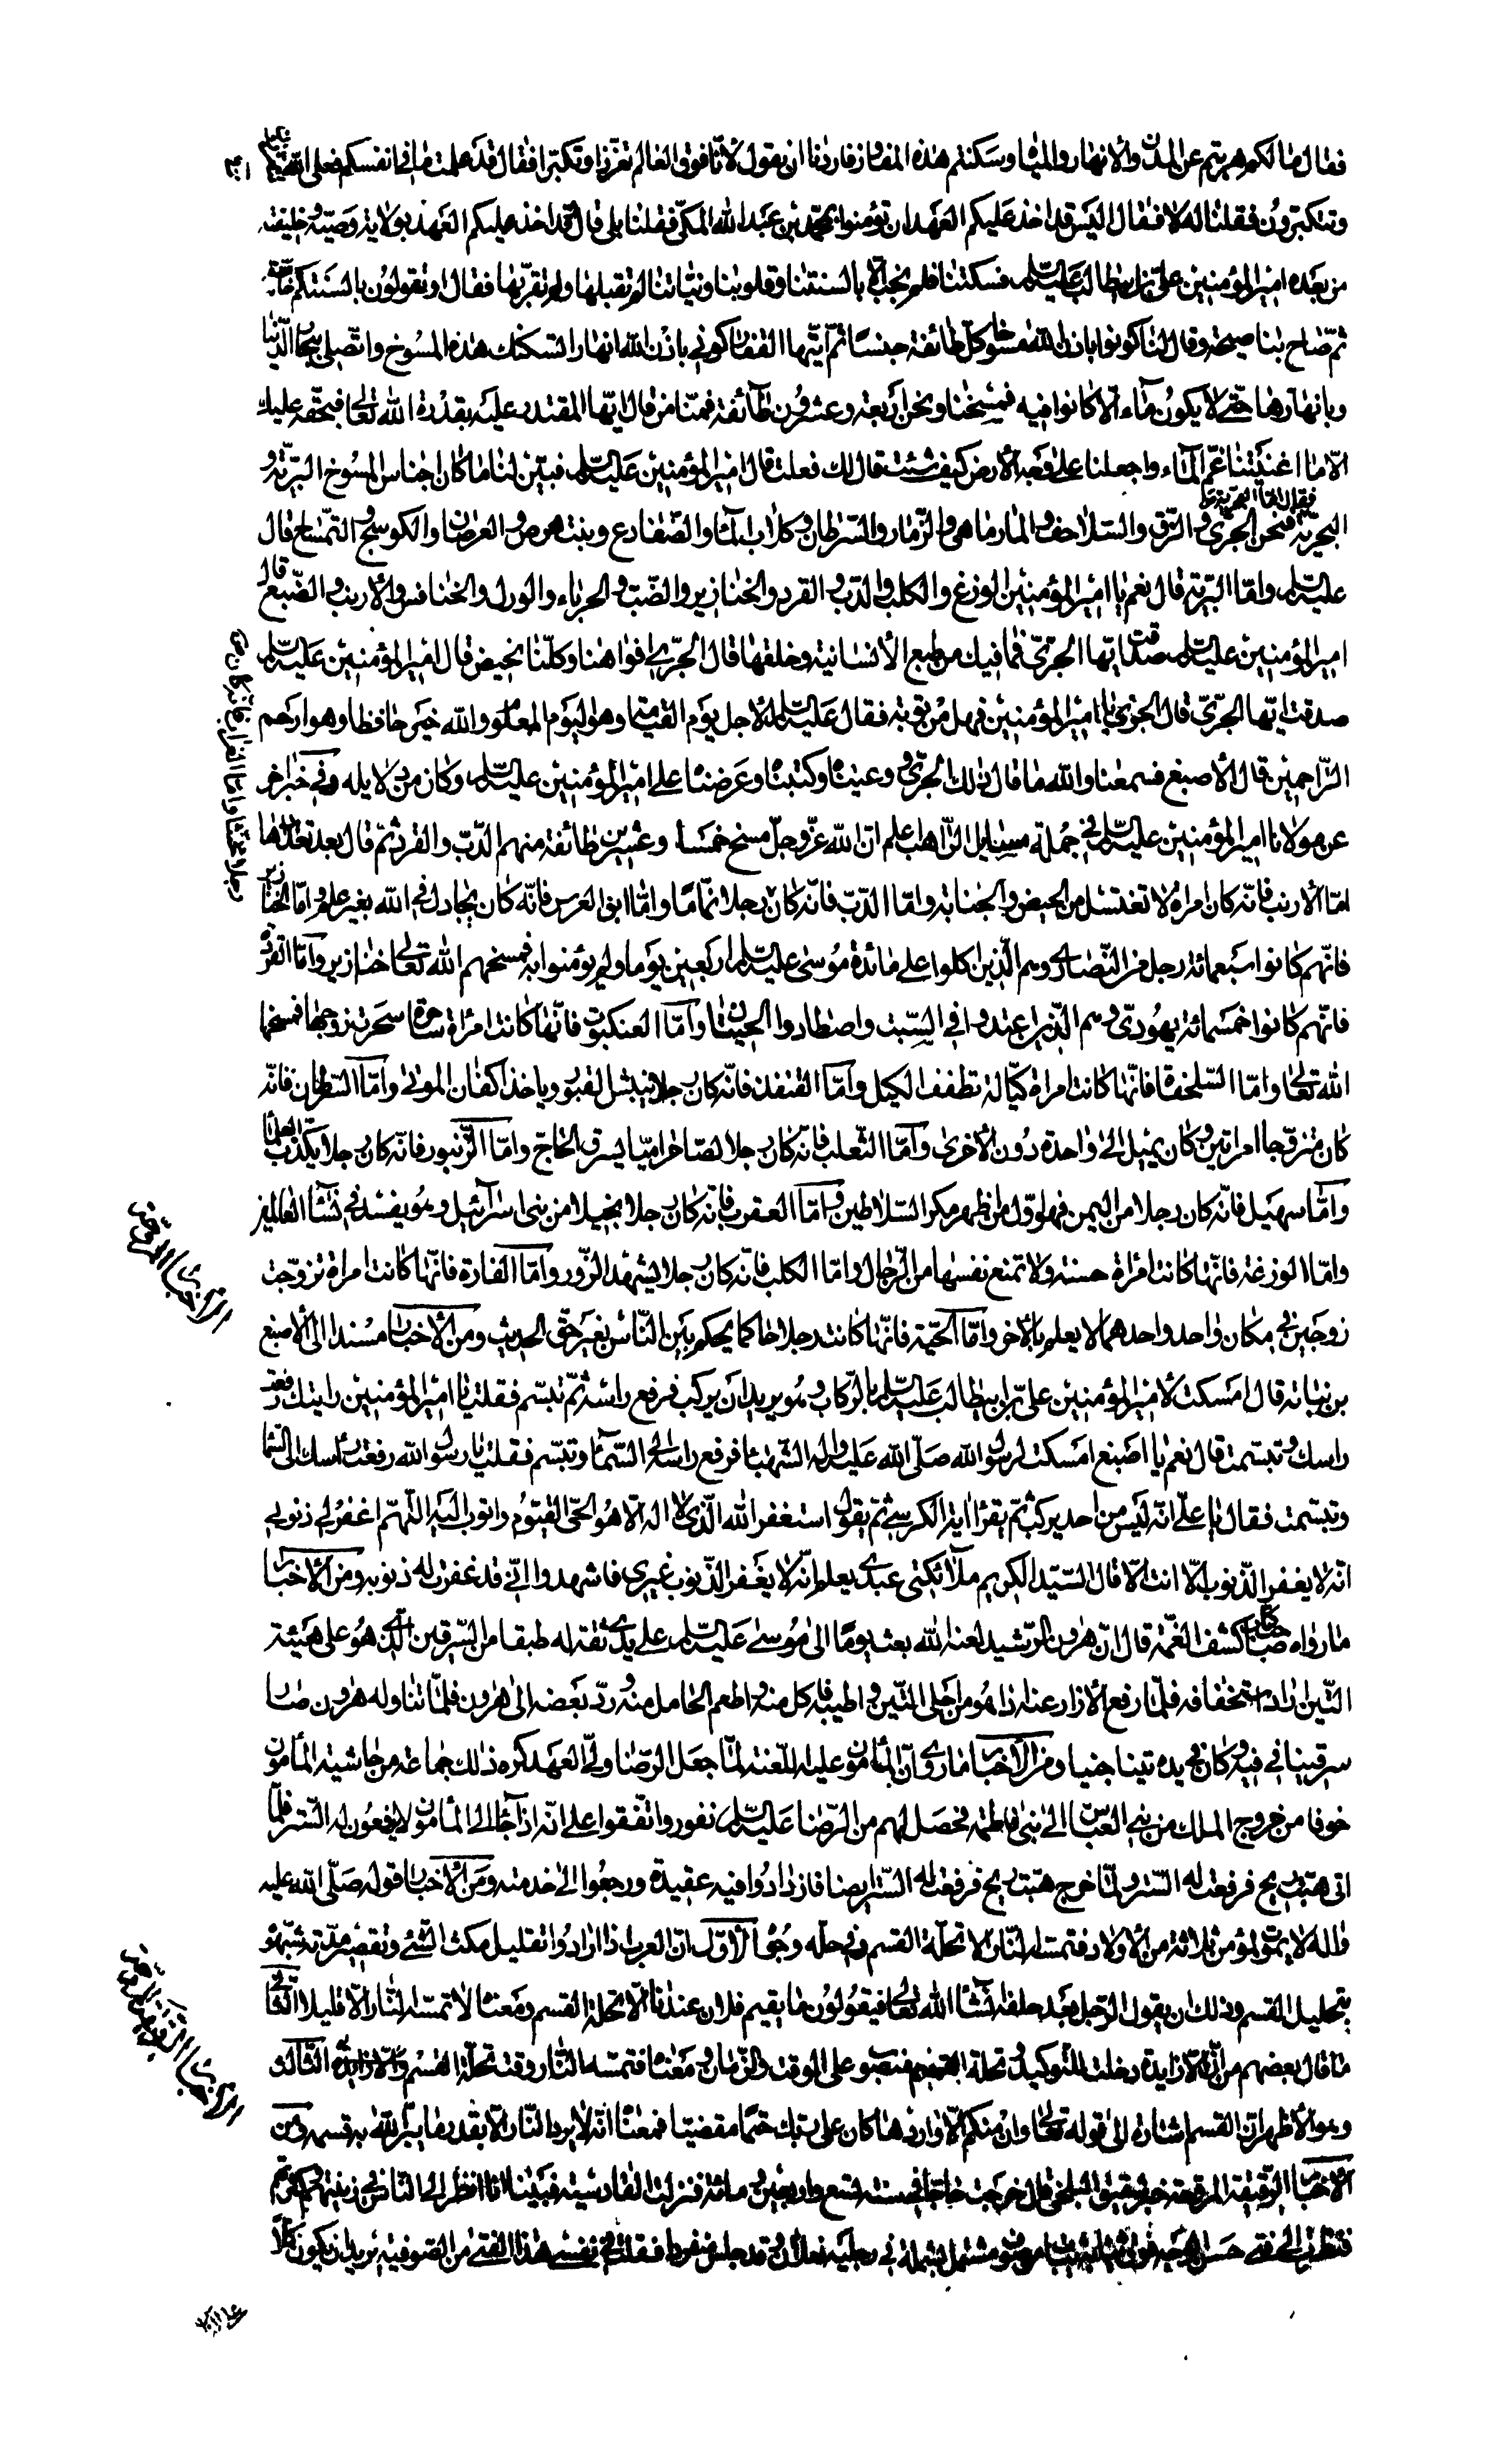 فقال مالكم هربتم عن المدن والانهار والمياه وسكنتم هذه المفاوز فاردنا ان نقول لانا فوق العالم تعززا وتكبرا فقال قد علمت ما في انفسكم فعلى الله
وتتكبرون فقلنا له لا فقال اليس قد اخذ عليكم العهد ان تؤمنوا بمحمد بن عبد الله المكي فقلنا بلى قال قد اخذ عليكم العهد بولاية وصيه وخليفته
من بعده امير المؤمنين علي بن ابيطالب عليه السلم فسكتنا فلم نجب الا بالسنتنا وقلوبنا ونياتنا لم تقبلها ولم تقر بها فقال او تقولون بالسنتكم خاصة
ثم صاح بنا صيحة وقال لنا كونوا باذن الله مسوخا كل طائفة جنسا ثم ايتها القفار كوني باذن الله انهارا تسكنك هذه المسوخ واتصلي ببحار الدنيا
وبانهارها حتى لا يكون ماء الا كانوا فيه فمسخنا ونحن اربعة وعشرون طائفة فمنا من قال ايها المقتدر علينا بقدرة الله تعالى فبحقه عليك
الا ما اغنيتنا عن الماء واجعلنا على وجه الارض كيف شئت قال لك فعلت قال امير المؤمنين عليه السلم فبين لنا ما كان اجناس المسوخ البرية و
البحرية فقال اما البحرية فنحن الجري والرق والسلاحف والمارماهي والزمار والسرطان وكلاب الماء والضفادع وبنت هرص والعرضان والكوسج والتمساح قال
عليه السلم واما البرية قال نعم يا امير المؤمنين الوزغ والكلب والدب والقرد والخنازير والضب والحرباء والورل والخنافس والارنب والضبع قال
امير المؤمنين عليه السلم صدقت ايها الجري فما فيك من طبع الانسانية وخلقها قال الجري افواهنا وكلنا نحيض قال امير المؤمنين عليه السلم
صدقت ايها الجري قال الجري يا امير المؤمنين فهل من توبة فقال عليه السلم الاجل يوم القيمة وهو اليوم المعلوم والله خير حافظا وهو ارحم
الراحمين قال الاصبغ فسمعنا والله ما قال ذلك الجري ووعيناه وكتبناه وعرضناه على امير المؤمنين عليه السلم وكان من دلايله وفي خبر اخر
عن مولانا امير المؤمنين عليه السلم في جملة مسايل الراهب اعلم ان الله عز وجل مسخ خمسا وعشرين طائفة منهم الدب والقرد ثم قال بعد تعدادها
اما الارنب فانه كان امراة لا تغتسل من الحيض والجنابة واما الدب فانه كان رجلا نماما واما ابن العرس فانه كان يجادل في الله بغير علم واما الخنازير
فانهم كانوا سبعمائة رجل من النصارى وهم الذين اكلوا على مائدة موسى عليه السلم اربعين يوما ولم يؤمنوا به فمسخهم الله تعالى خنازير واما القردة
فانهم كانوا خمسمائة يهودي وهم الذين اعتدوا في السبت واصطادوا الحيتان واما العنكبوت فانها كانت امراة ساحرة سحرت زوجها فمسخها
الله تعالى واما السلحفاة فانها كانت امراة كيالة تطفف الكيل واما القنفذ فانه كان رجلا ينبش القبور وياخذ اكفان الموتى واما السرطان فانه
كان متزوجا امراتين وكان يميل الى واحدة دون الاخرى واما الثعلب فانه كان رجلا لصا حراميا يسرق الحاج واما الزنبور فانه كان رجلا يكذب العلماء
واما سهيل فانه كان رجلا من اليمن فهو اول من ظهر مكر السلاطين واما العقرب فانه كان رجلا بخيلا من بني اسرائيل وهو يفسد في نساء العالمين
واما الوزغة فانها كانت امراة حسنة ولا تمنع نفسها من الرجال واما الكلب فانه كان رجلا يشهد الزور واما الفارة فانها كانت امراة تزوجت
زوجين في مكان واحد واحدهما لا يعلم بالاخر واما الحية فانها كانت رجلا حاكما يحكم بين الناس بغير حق الحديث ومن الاخبار مسندا الى الاصبغ
بن نباتة قال امسكت لامير المؤمنين علي بن ابيطالب عليه السلم بالركاب وهو يريد ان يركب فرفع راسه ثم تبسم فقلت يا امير المؤمنين رايتك رفعت
راسك وتبسمت قال نعم يا اصبغ امسكت لرسول الله صلى الله عليه واله الشهباء فرفع راسه الى السماء وتبسم فقلت يا رسول الله رفعت راسك الى السماء
وتبسمت فقال يا علي انه ليس من احد يركب ثم يقرا اية الكرسي ثم يقول استغفر الله الذي لا اله الا هو الحي القيوم واتوب اليه اللهم اغفر لي ذنوبي
انه لا يغفر الذنوب الا انت الا قال السيد الكريم ملائكتي عبدي يعلم انه لا يغفر الذنوب غيري فاشهدوا اني قد غفرت له ذنوبه ومن الاخبار
ما رواه صاحب كتاب كشف الغمة قال ان هرون الرشيد لعنه الله بعث يوما الى موسى عليه السلم على يدي ثقة له طبقا من السرقين الذي هو على هيئة
التين اراد استخفافه فلما رفع الازار عنه اذا هو من احلى التين واطيبه فاكل منه واطعم الحامل منه ورد بعضه الى هرون فلما تناوله هرون صار
سرقينا في فيه وكان في يده تينا جنيا ومن الاخبار ما روي ان المامون عليه اللعنة لما جعل الرضا ولي العهد كره ذلك جماعة من حاشية المامون
خوفا من خروج الملك من بني العباس الى بني فاطمة فحصل لهم من الرضا عليه السلم نفور واتفقوا على انه اذا جاء الى المامون لا يرفعون له الستر فلما
اتى هبت ريح فرفعت له الستر ولما خرج هبت ريح فرفعت له الستر ايضا فازدادوا فيه عقيدة ورجعوا الى خدمته ومن الاخبار قوله صلى الله عليه
واله لا يموت لمؤمن ثلاثة من الاولاد فتمسه النار الا تحلة القسم وفي حله وجوه الاول ان العرب اذا ارادوا تقليل مكث الشئ وتقصير مدته شبهوه
بتحليل القسم وذلك ان يقول الرجل بعد حلفه ان شاء الله تعالى فيقولون ما يقيم فلان عندنا الا تحلة القسم ومعناه لا تمسه النار الا قليلا الثاني
ما قال بعضهم من ان الا زايدة دخلت للتوكيد وتحلة القسم منصوب على الوقت والزمان ومعناه فتمسه النار وقت تحلة القسم والا زايدة الثالث
وهو الاظهر ان القسم اشارة الى قوله تعالى وان منكم الا واردها كان على ربك حتما مقضيا فمعناه انه لا يرد النار الا بقدر ما يبر الله به قسمه ومن
الاخبار الرقيقة المرققة خبر شقيق البلخي قال خرجت حاجا في سنة تسع واربعين ومائة فنزلت القادسية فبينا انا انظر الى الناس في زينتهم وكثرتهم
فنظرت الى فتى حسن الوجه فوق ثيابه ثوب من صوف مشتمل بشملة في رجليه نعلان وقد جلس منفردا فقلت في نفسي هذا الفتى من الصوفية يريد ان يكون كلا